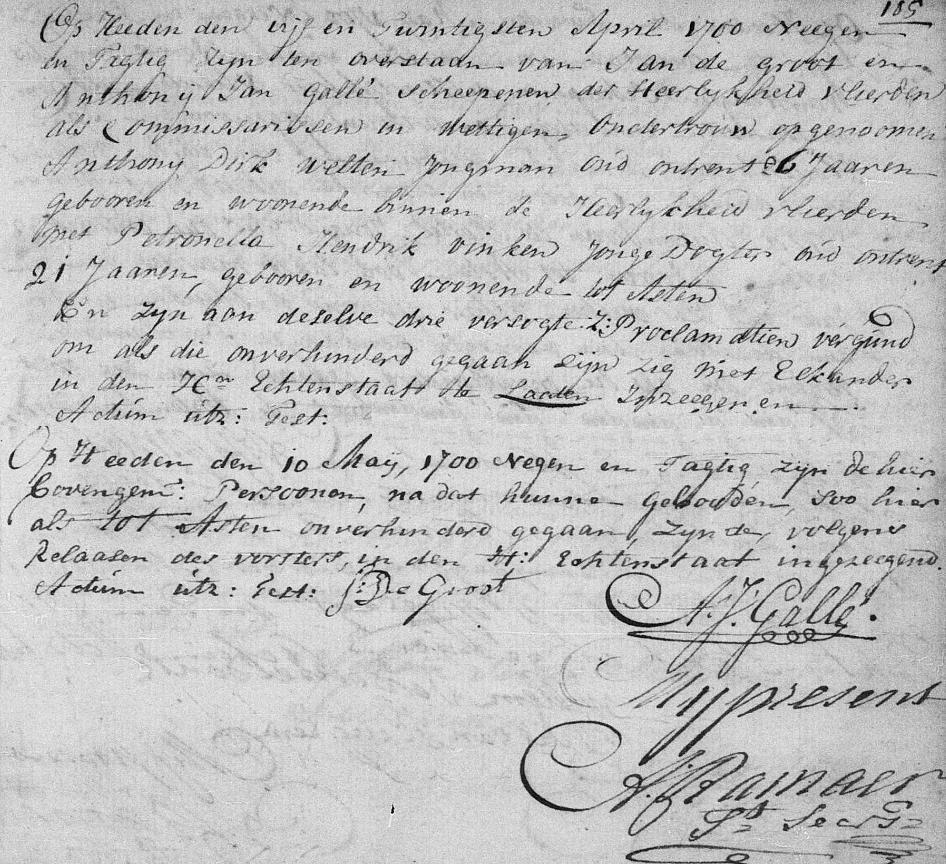 185
Op Heeden den vijf en Twintigsten April 1700 Neegen
en Tagtig Zyn ten overstaan van Jan de Groot en
Anthonij Jan Gallé Scheepenen der Heerlykheid Vlierden
als Commissarissen in wettigen Ondertrouw opgenoomen
Anthony Dirk Welten Jongman oud ontrent 26 Jaaren
gebooren en woonende binnen de Heerlykheid Vlierden
met Petronella Hendrik Vinken Jonge Dogter oud ontrent
21 Jaaren, gebooren en woonende tot Asten
En Zyn aan deselve drie versogte Z: Proclamatien vergund
om als die onverhinderd gegaan Zijn Zig met Elkander
in den Hn Echtenstaat te Laaten Inzeegenen
Actum utz: Test:
Op Heeden den 10 Maij, 1700 Negen en Tagtig Zyn de hier
bovengem: Persoonen, na dat hunne Gebooden, Soo hier
als tot Asten onverhinderd gegaan, Zynde, volgens
Relaasen des vorsters, in den H: Echtenstaat ingezeegend.
Actum utz: Test: J: De Groot
A. J. Gallé.
My present
A. J. Ramaer
St Secrts